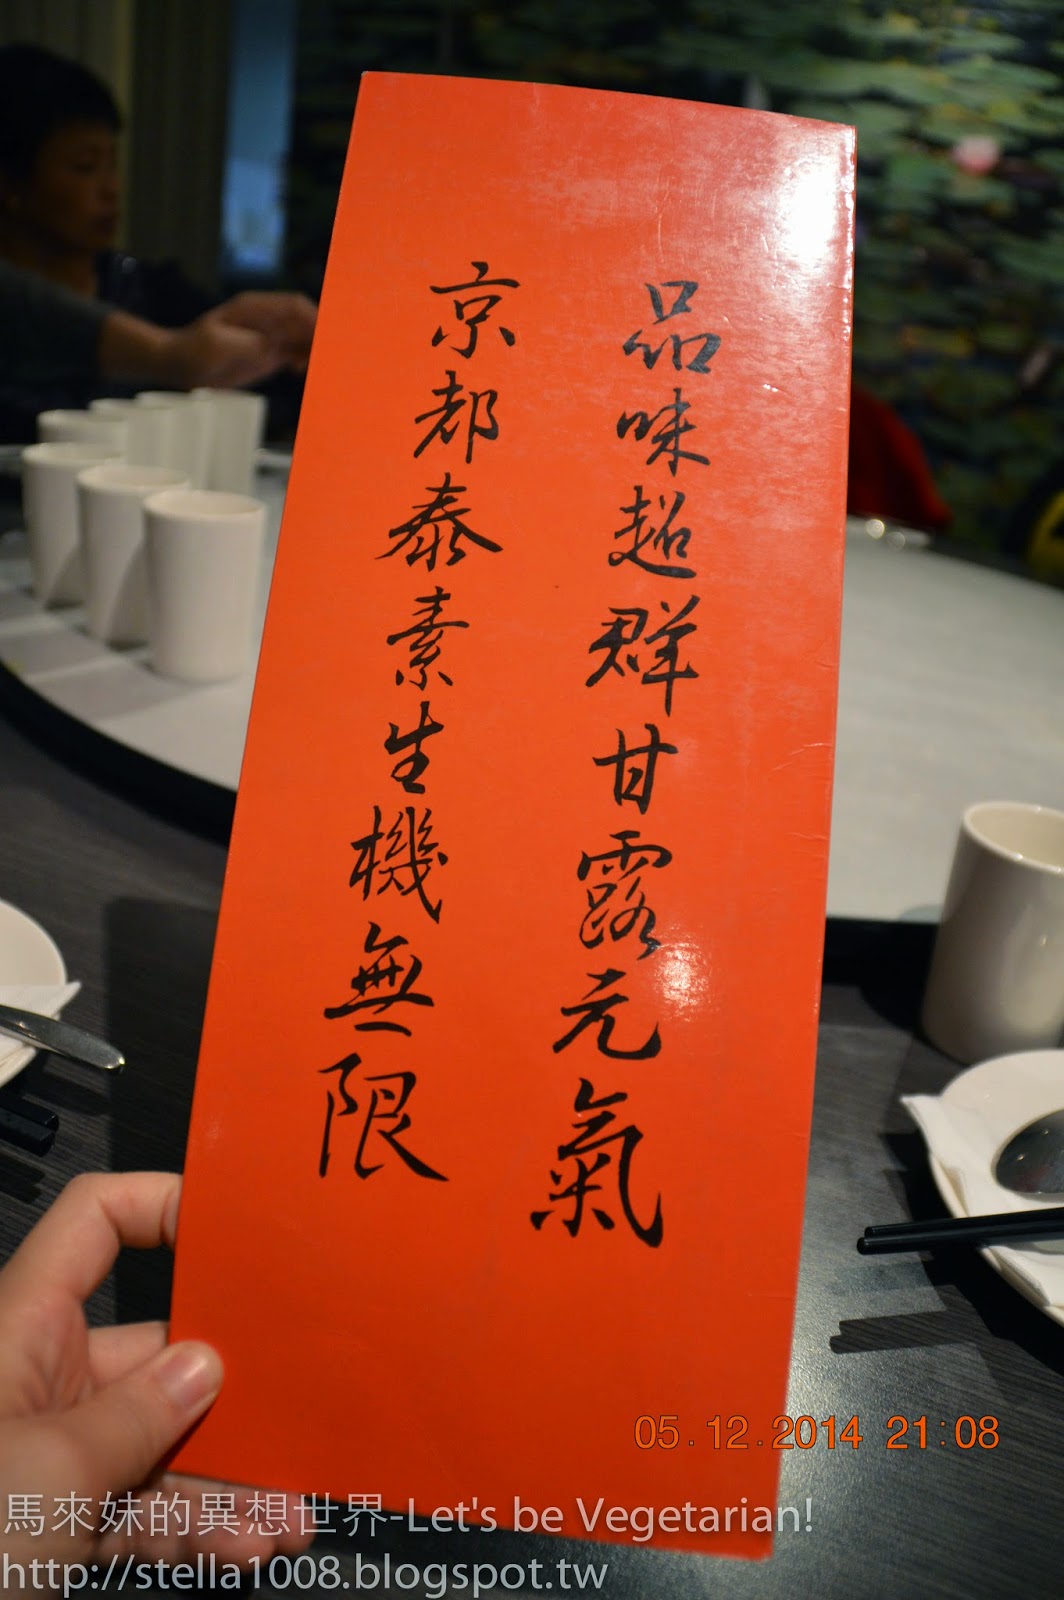 品味超群甘露元氣
京都泰素生機無限
05.12.2014 21:08
馬來妹的異想世界-Let's be Vegetarian!
http://stella1008.blogspot.tw